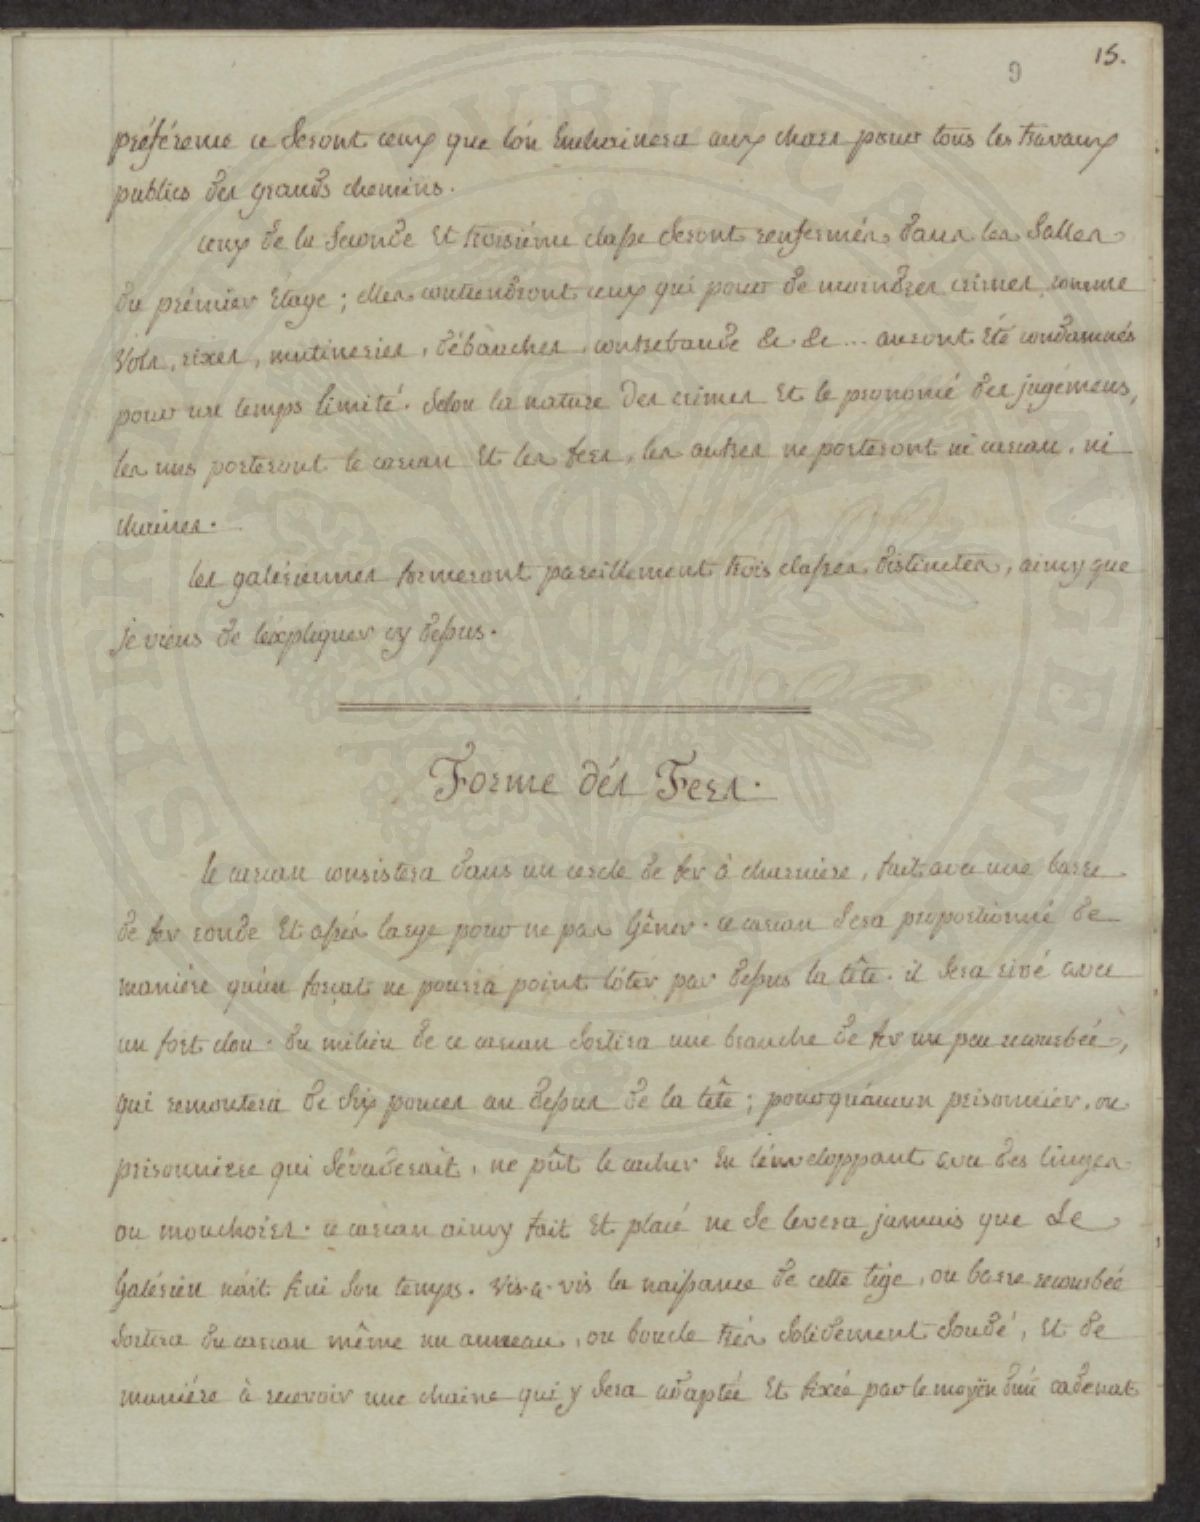 15.
9
préférence ce seront ceux que l'on Enchainera aux chars pour tous les travaux
publics des grands chemins.
ceux de la Seconde Et troisiéme classe seront renfermés dans les Salles
du prémier Etage; elles contiendront ceux qui pour de moindres crimes, comme
Vols, rixes, mutineries, débauches, contrebande &c &c... auront Eté condamnés
pour un temps limité. Selon la nature des crimes Et le prononcé des jugémens,
les uns porteront le carcan Et les fers, les autres ne porteront ni carcan, ni
chaines.
les galériennes formeront pareillement trois classes distinctes, ainsy que
je viens de l'éxpliquer cy dessus.
Forme dés Fers.
le carcan consistera dans un cercle de fer à charniere, fait avec une barre
de fer ronde Et assés large pour ne pas Gêner. ce carcan sera proportionné de
maniére qu'un forçat ne pourra point l'ôter par dessus la tête. il sera rivé avec
un fort clou. du milieu de ce carcan sortira une branche de fer un peu recourbée,
qui remontera de six pouces au dessus de la tête; pour qu'aucun prisonnier, ou
prisonniere qui s'évaderait, ne pût le cacher En l'énveloppant avec des linges
ou mouchoirs. ce carcan ainsy fait Et placé ne se levera jamais que Le
Galérien n'ait fini son temps. Vis-a-vis la naissance de cette tige, ou barre recourbée
sortira du carcan même un anneau, ou boucle trés solidement soudé, Et de
maniére à recevoir une chaine qui y sera adaptée Et fixée par le moyën d'un cadenat